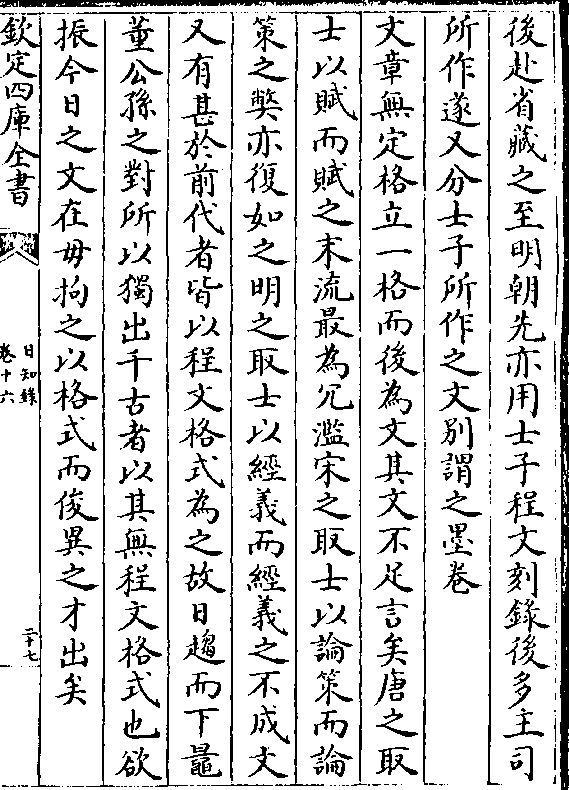 後赴省藏之至明朝先亦用士子程文刻錄後多主司
所作遂又分士子所作之文别謂之墨卷
文章無定格立一格而後為文其文不足言矣唐之取
士以賦而賦之末流最為冗濫宋之取士以論策而論
策之弊亦復如之明之取士以經義而經義之不成文
又有甚於前代者皆以程文格式為之故日趨而下鼂
董公孫之對所以獨出千古者以其無程文格式也欲
振今日之文在毋拘之以格式而俊異之才出矣
欽定四庫全書
日知錄
卷十六
二十七